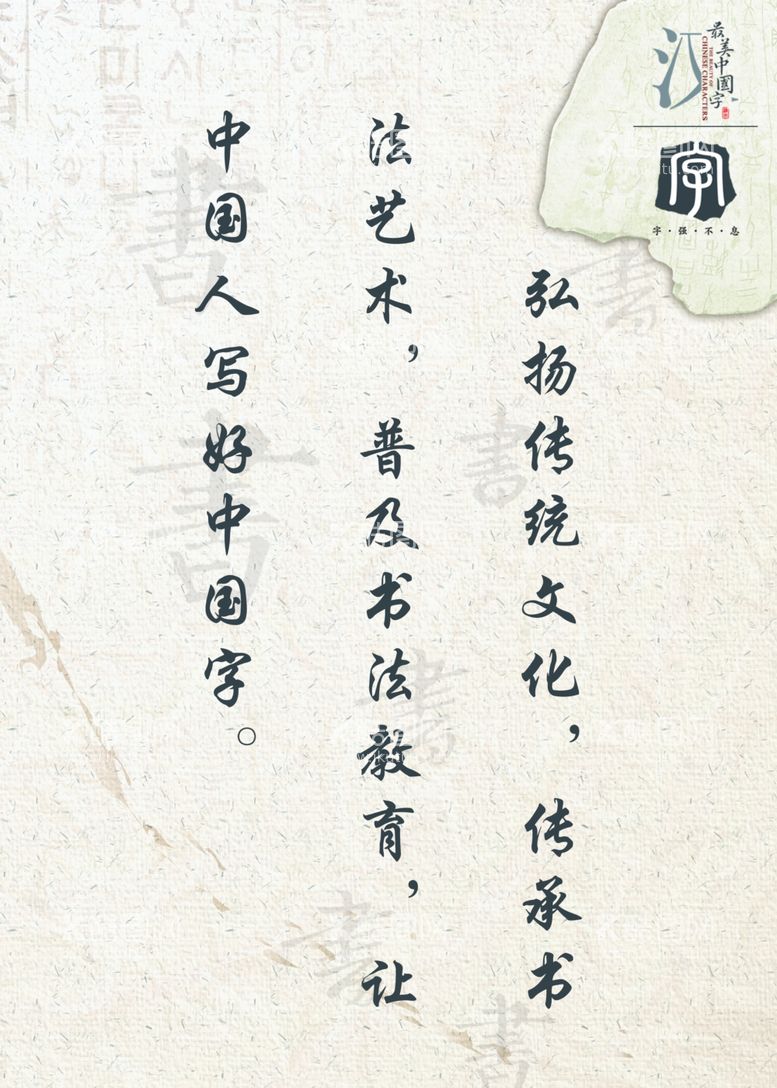 弘扬传统文化，传承书
法艺术，普及书法教育，让
中国人写好中国字。
最美中國字
THE BEAUTY OF
CHINESE CHARACTERS
字
字·强·不·息
書
書
書
書
書
書